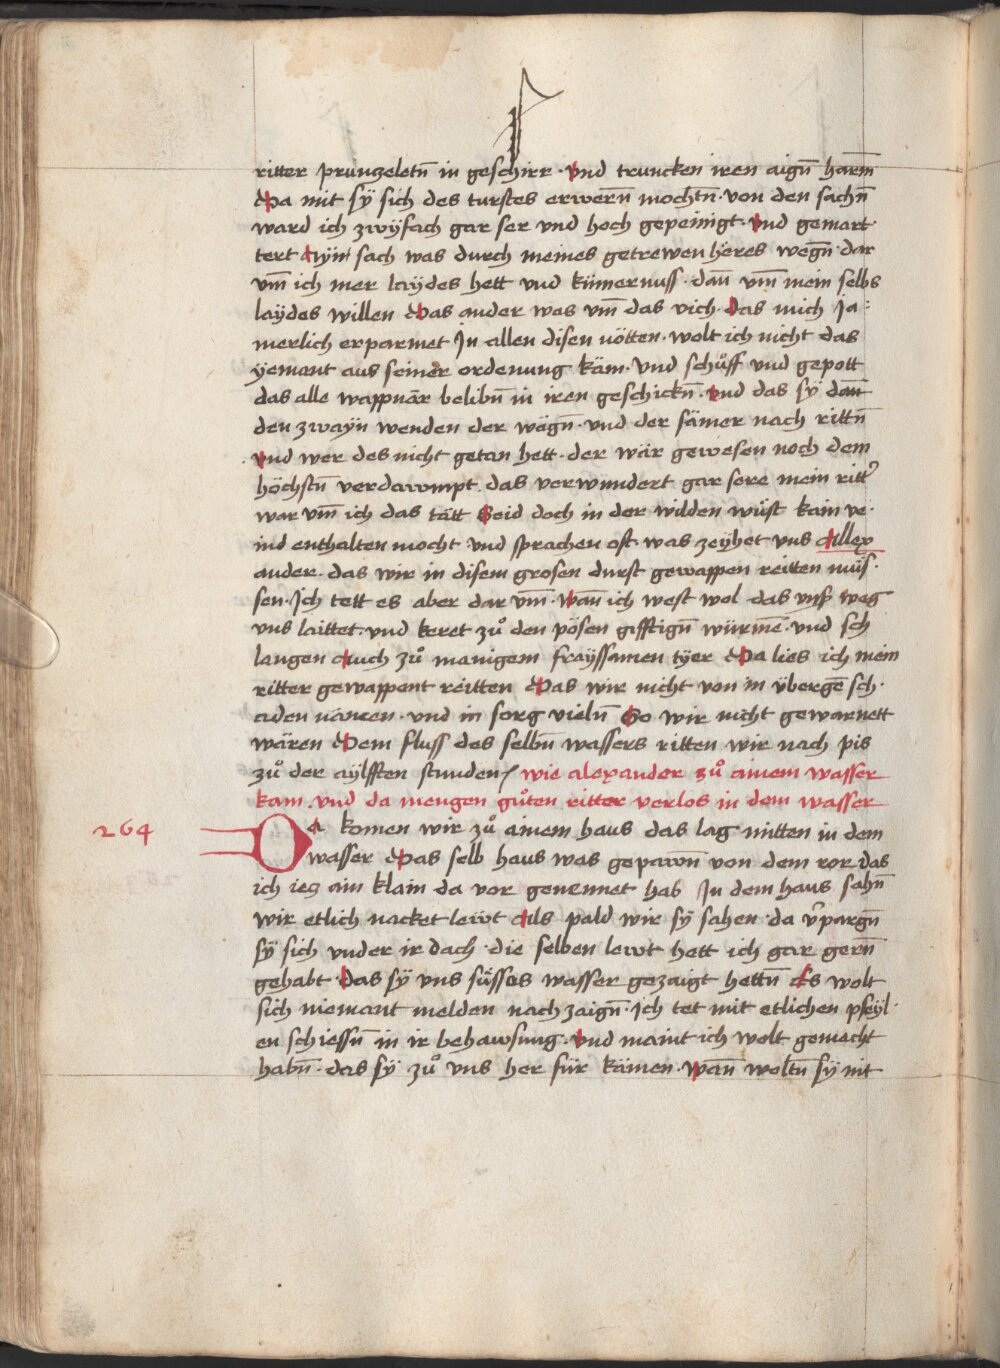 ritter prunzeletn̄ in geschirr · vnd truncken iren aign̄ harm̄
Da mit sÿ sich des turstes erwern̄ mochtn̄ · von den sachn̄
ward ich zwÿfach gar ser vnd hoch gepeinigt · vnd gemart
tert Aÿn sach was durch meines getrewen heres wegn̄ · dar
vm̄ ich mer laÿdes hett vnd kümernuss · dan̄ vm̄ mein selbs
laÿdes willen Das ander was vm̄ das vich · das mich Ja :
merlich erparmet Jn allen disen nötten · wolt ich nicht das
yemant aus seiner ordenung käm · Vnd schůff vnd gepott
das alle wappnär belibn̄ in iren geschickn̄ · vnd das sÿ dan̄
den zwaÿn wenden der wägn̄ · vnd der sämer nach rittn̄
vnd wer des nicht getan hett · der wär gewesen noch dem
höchstn̄ verdampt · das verwundert gar sere mein ritt̄
war vm̄ ich das tätt Seid doch in der wilden wüst kain ve ·
ind enthalten mocht vnd sprachen oft · was zeÿhet vns Allex
ander · das wir in disem grosen durst gewappen reitten müs ·
sen · Ich tett es aber dar vm̄ · Wan̄ ich west wol das vnser weg
vns laittet · vnd keret zů den pösen gifftign̄ würmē · vnd sch
langen Auch zů manigem fraÿssamen tÿer Da lies ich mein
ritter gewappent reitten Das wir nicht von in übergē sch ·
aden nämen · vnd in sorg vieln̄ So wir nicht gewarnett
wären Dem fluss des selbn̄ wassers ritten wir nach pis
zů der aÿlfften stunden / wie alexander zů ainem wasser
kam · vnd da mengen gůten ritter verlos in dem wasser
264
Da komen wir zů ainem haus das lag mitten in dem
wasser Das selb haus was gepawn̄ von dem ror das
ich iez ain klain da vor genennet hab Jn dem haus sahn̄
wir etlich nacket lewt Als pald wir sÿ sahen · da v̄pargn̄
sÿ sich vnder ir dach · die selben lewt hett ich gar gern̄
gehabt · Das sÿ vns süsses wasser gezaigt hettn̄ Es wolt
sich niemant melden nach zaign̄ · Ich tet mit etlichen pfeÿl ·
en schiessn̄ in ir behawsung · vnd maint ich wolt gemacht
habn̄ · das sÿ zů vns her für kämen · wan̄ woltn̄ sÿ nit